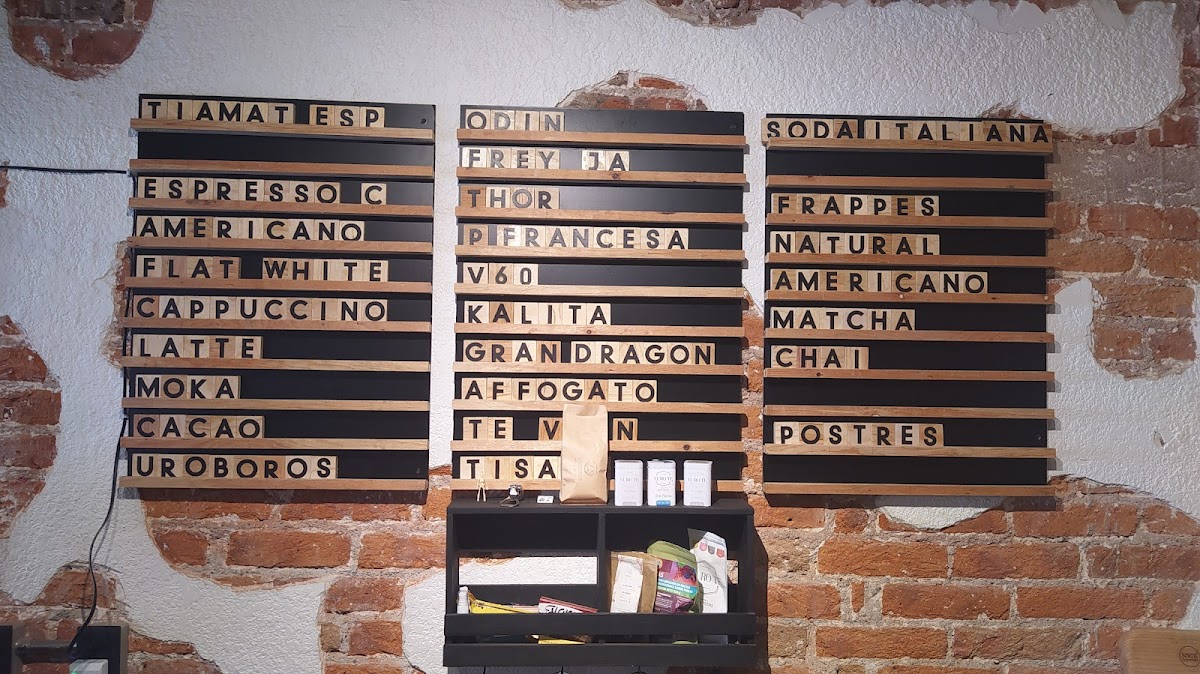 TIAMAT ESP
ESPRESSO C
AMERICANO
FLAT WHITE
CAPPUCCINO
LATTE
MOKA
CACAO
UROBOROS
ODIN
FREY JA
THOR
P FRANCESA
V60
KALITA
GRAN DRAGON
AFFOGATO
TE
TISA
SODA ITALIANA
FRAPPES
NATURAL
AMERICANO
MATCHA
CHAI
POSTRES